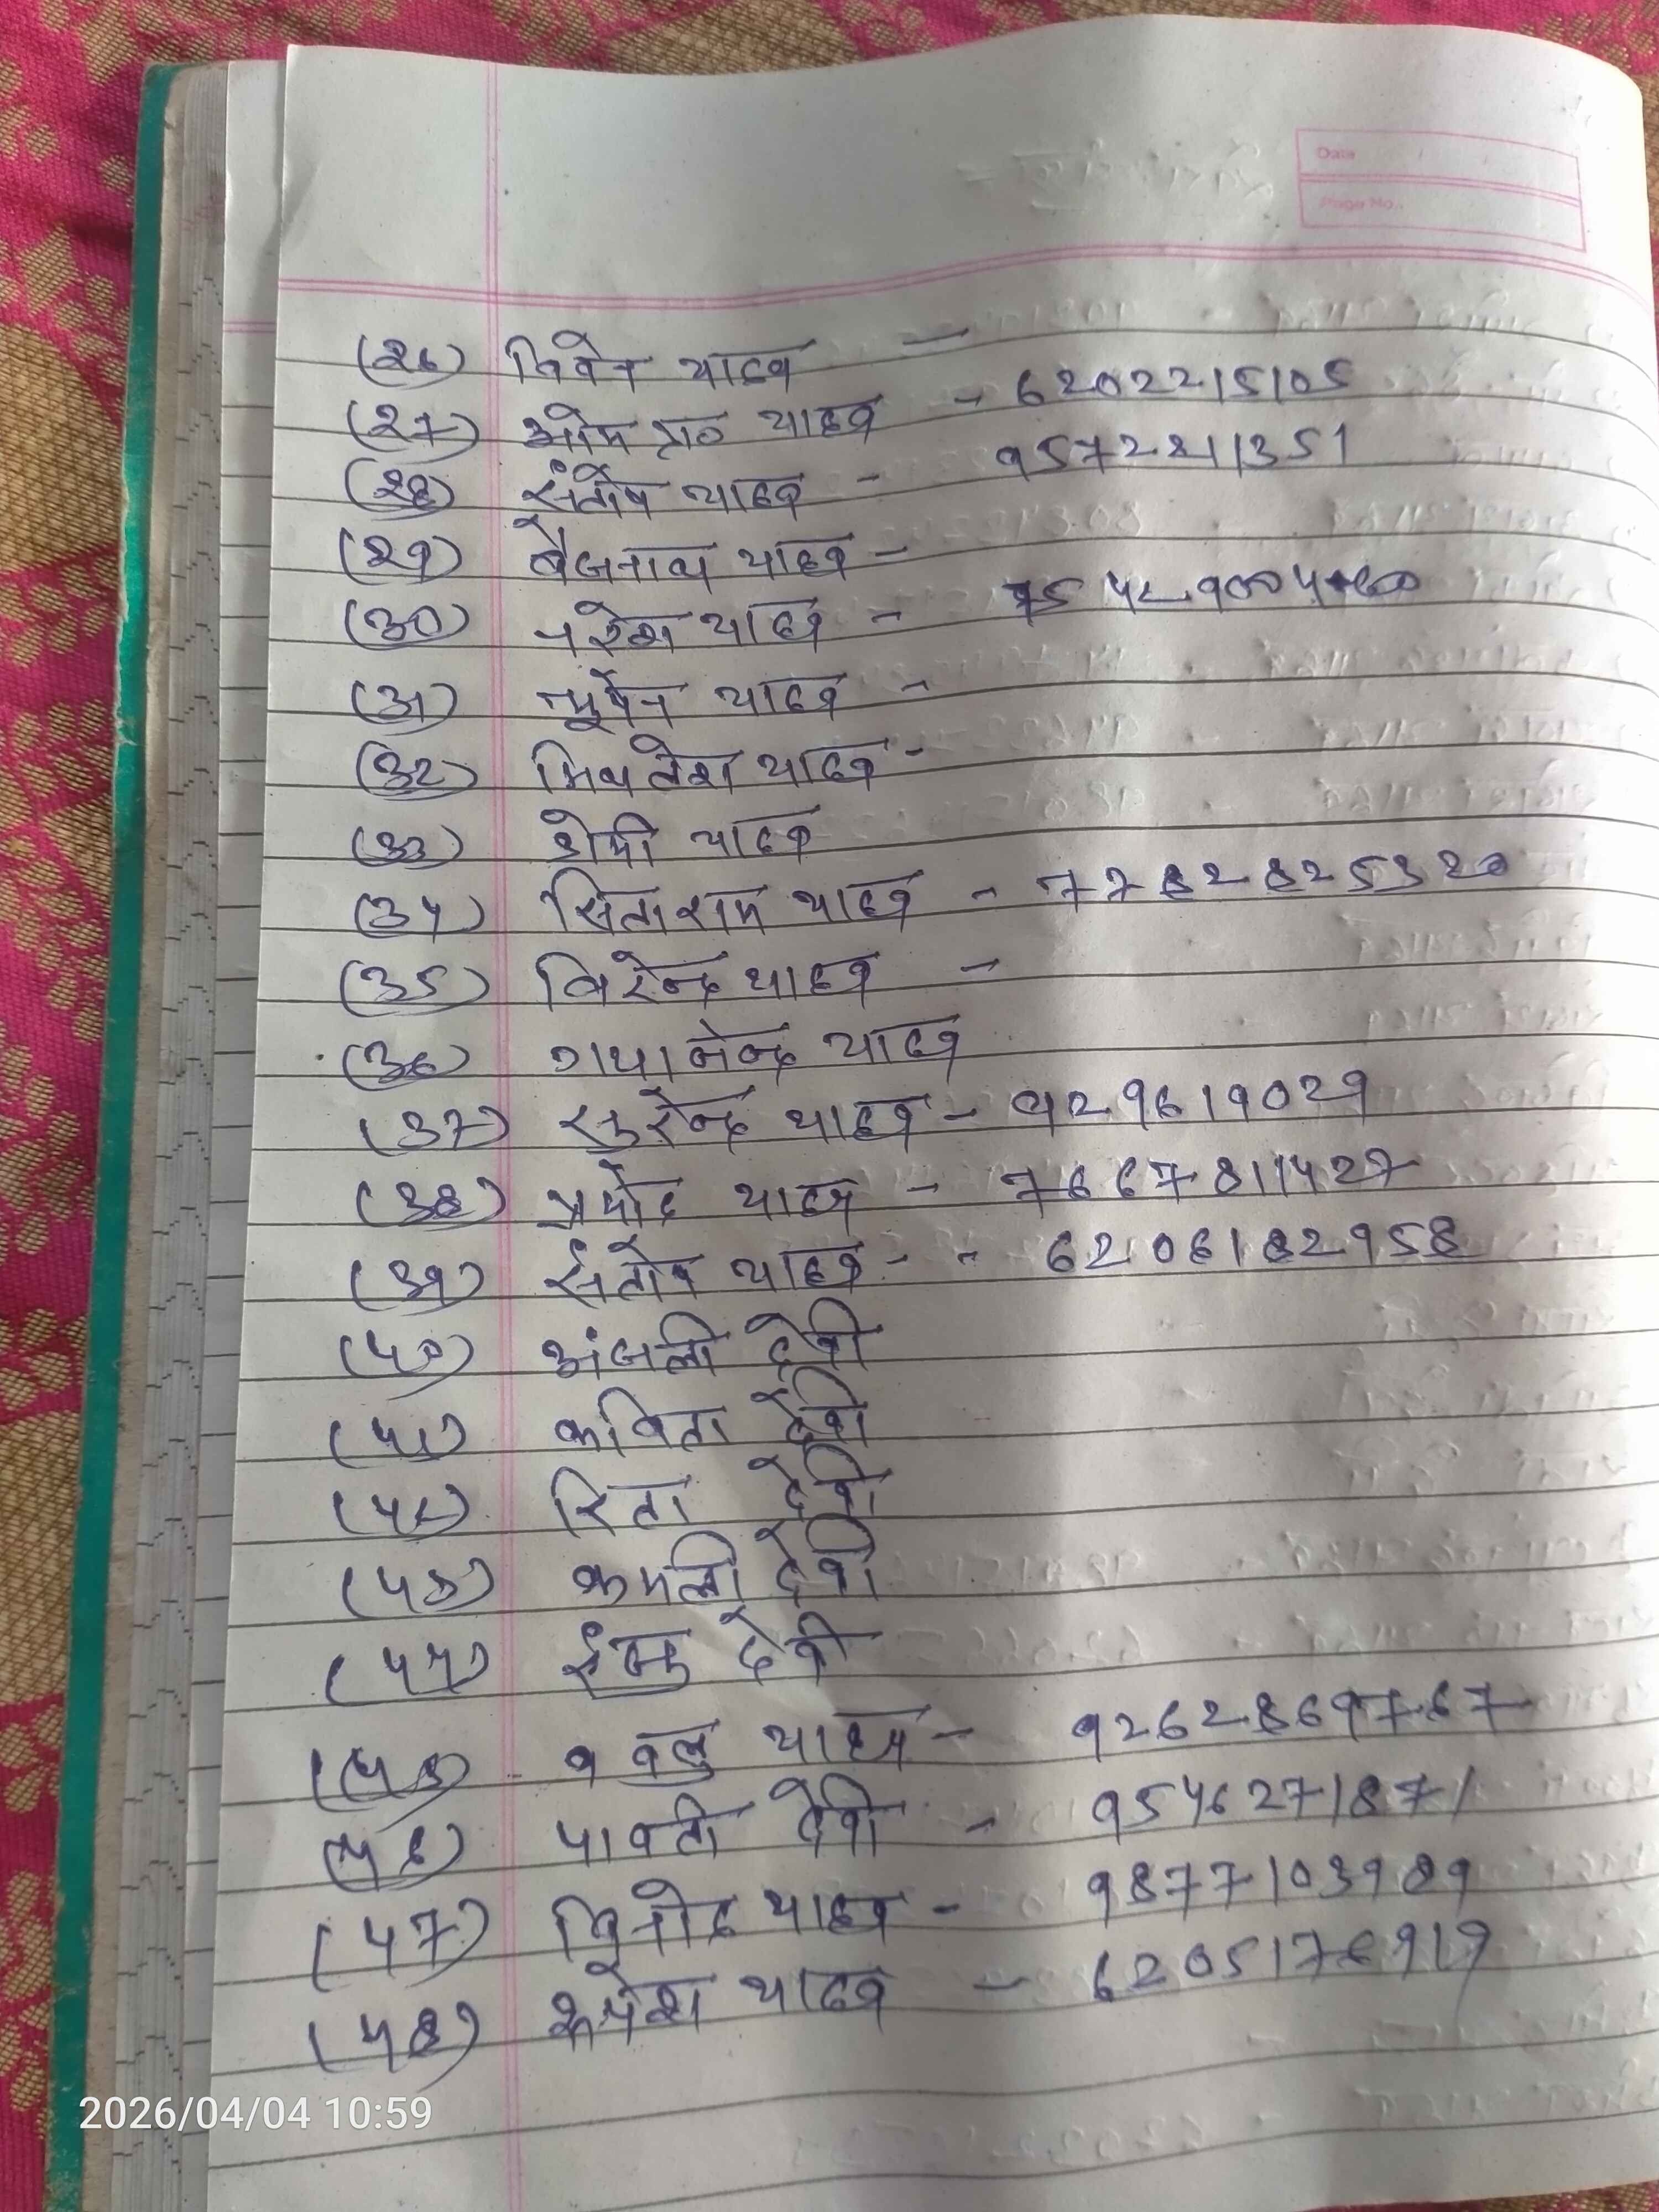 Date
Page No.
(26) विवेन यादव —
(27) ओम प्र० यादव - 6202215105
(28) संतोष यादव - 9572211351
(29) बैजनाथ यादव -
(30) नरेश यादव -
(31) यादव -
(32) मिथलेश यादव -
(33) डोमी यादव
(34) सिताराम यादव - 7782825320
(35) विरेन्द्र यादव -
(36) यादव
(37) सुरेन्द्र यादव - 929619029
(38) प्रमोद यादव - 7667811427
(39) संतोष यादव - - 6206182958
(40) अंजली देवी
(41) कविता देवी
(42) रिता देवी
(43) कमली देवी
(44) देवी
(45) बबलु यादव - 9262869767
(46) पावती देवी - 9546271871
(47) विनोद यादव - 9877103989
(48) रूपेश यादव - 6205176919
2026/04/04 10:59